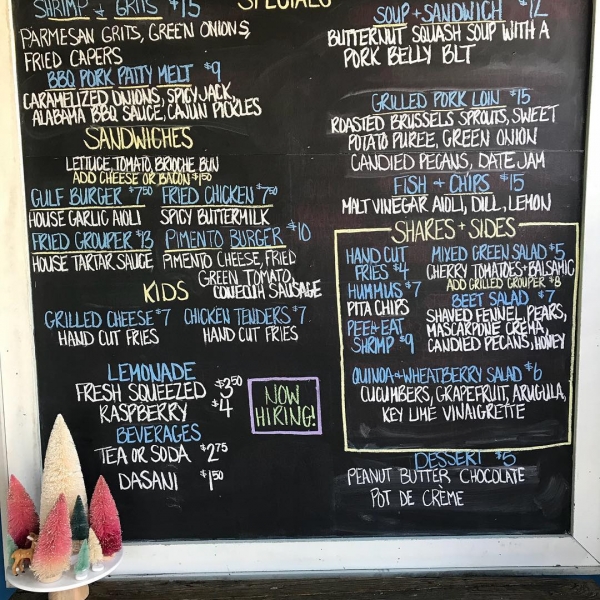 SPECIALS
SHRIMP + GRITS $15
PARMESAN GRITS, GREEN ONIONS,
FRIED CAPERS
BBQ PORK PATTY MELT $9
CARAMELIZED ONIONS, SPICY JACK,
ALABAMA BBQ SAUCE, CAJUN PICKLES
SANDWICHES
LETTUCE, TOMATO, BRIOCHE BUN
ADD CHEESE OR BACON $1.50
GULF BURGER $7.50 FRIED CHICKEN $7.50
HOUSE GARLIC AIOLI SPICY BUTTERMILK
FRIED GROUPER $13 PIMENTO BURGER $10
HOUSE TARTAR SAUCE PIMENTO CHEESE, FRIED
GREEN TOMATO,
CONECUH SAUSAGE
KIDS
GRILLED CHEESE $7 CHICKEN TENDERS $7
HAND CUT FRIES HAND CUT FRIES
LEMONADE
FRESH SQUEEZED $3.50
RASPBERRY $4
BEVERAGES
TEA OR SODA $2.75
DASANI $1.50
NOW
HIRING!
SOUP + SANDWICH $12
BUTTERNUT SQUASH SOUP WITH A
PORK BELLY BLT
GRILLED PORK LOIN $15
ROASTED BRUSSELS SPROUTS, SWEET
POTATO PUREE, GREEN ONION
CANDIED PECANS, DATE JAM
FISH + CHIPS $15
MALT VINEGAR AIOLI, DILL, LEMON
SHARES + SIDES
HAND CUT
FRIES $4
HUMMUS $7
PITA CHIPS
PEEL + EAT
SHRIMP $9
MIXED GREEN SALAD $5
CHERRY TOMATOES + BALSAMIC
ADD GRILLED GROUPER $8
BEET SALAD $7
SHAVED FENNEL, PEARS,
MASCARPONE CREMA,
CANDIED PECANS, HONEY
QUINOA + WHEATBERRY SALAD $6
CUCUMBERS, GRAPEFRUIT, ARUGULA,
KEY LIME VINAIGRETTE
DESSERT $5
PEANUT BUTTER CHOCOLATE
POT DE CRÈME